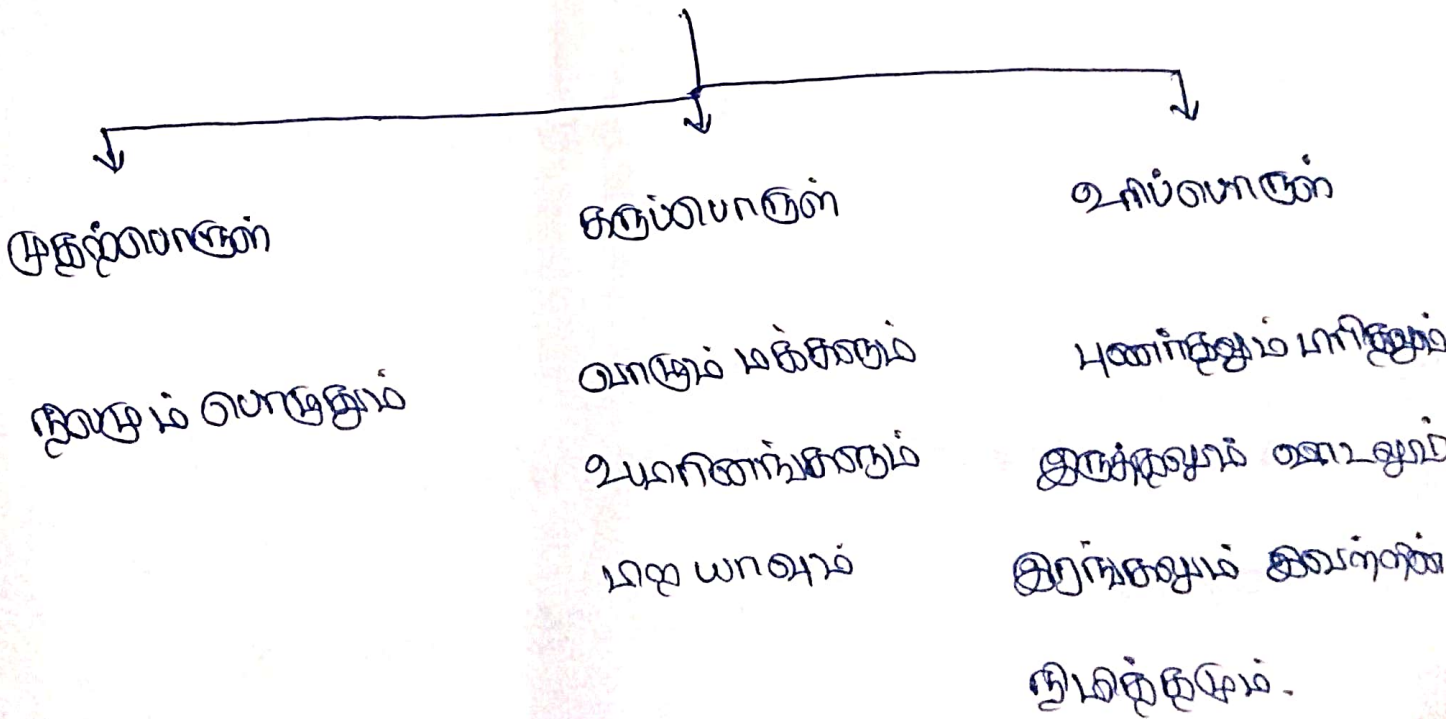 முதற்பொருள்
நிலமும் பொழுதும்
கருப்பொருள்
வாழும் மக்களும்
உயிரினங்களும்
பிற யாவும்
உரிப்பொருள்
புணர்தலும் பிரிதலும்
இருத்தலும் ஊடலும்
இரங்கலும் இவற்றின்
நிமித்தமும்.